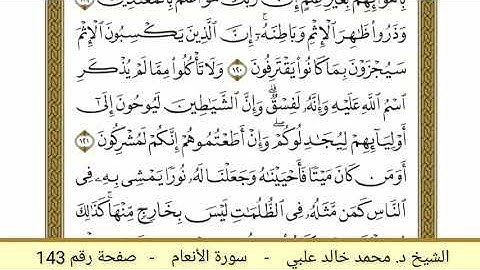 بِأَهْوَآئِهِم بِغَيْرِ عِلْمٍ إِنَّ رَبَّكَ هُوَ أَعْلَمُ بِالْمُعْتَدِينَ ١١٩
وَذَرُوا ظَاهِرَ الْإِثْمِ وَبَاطِنَهُ إِنَّ الَّذِينَ يَكْسِبُونَ الْإِثْمَ
سَيُجْزَوْنَ بِمَا كَانُوا يَقْتَرِفُونَ ١٢٠ وَلَا تَأْكُلُوا مِمَّا لَمْ يُذْكَرِ
اسْمُ اللَّهِ عَلَيْهِ وَإِنَّهُ لَفِسْقٌ وَإِنَّ الشَّيَاطِينَ لَيُوحُونَ إِلَى
أَوْلِيَآئِهِمْ لِيُجَادِلُوكُمْ وَإِنْ أَطَعْتُمُوهُمْ إِنَّكُمْ لَمُشْرِكُونَ ١٢١
أَوَمَن كَانَ مَيْتًا فَأَحْيَيْنَاهُ وَجَعَلْنَا لَهُ نُورًا يَمْشِي بِهِ فِي
النَّاسِ كَمَن مَّثَلُهُ فِي الظُّلُمَاتِ لَيْسَ بِخَارِجٍ مِّنْهَا كَذَٰلِكَ
الشيخ د. محمد خالد علبي - سورة الأنعام - صفحة رقم 143